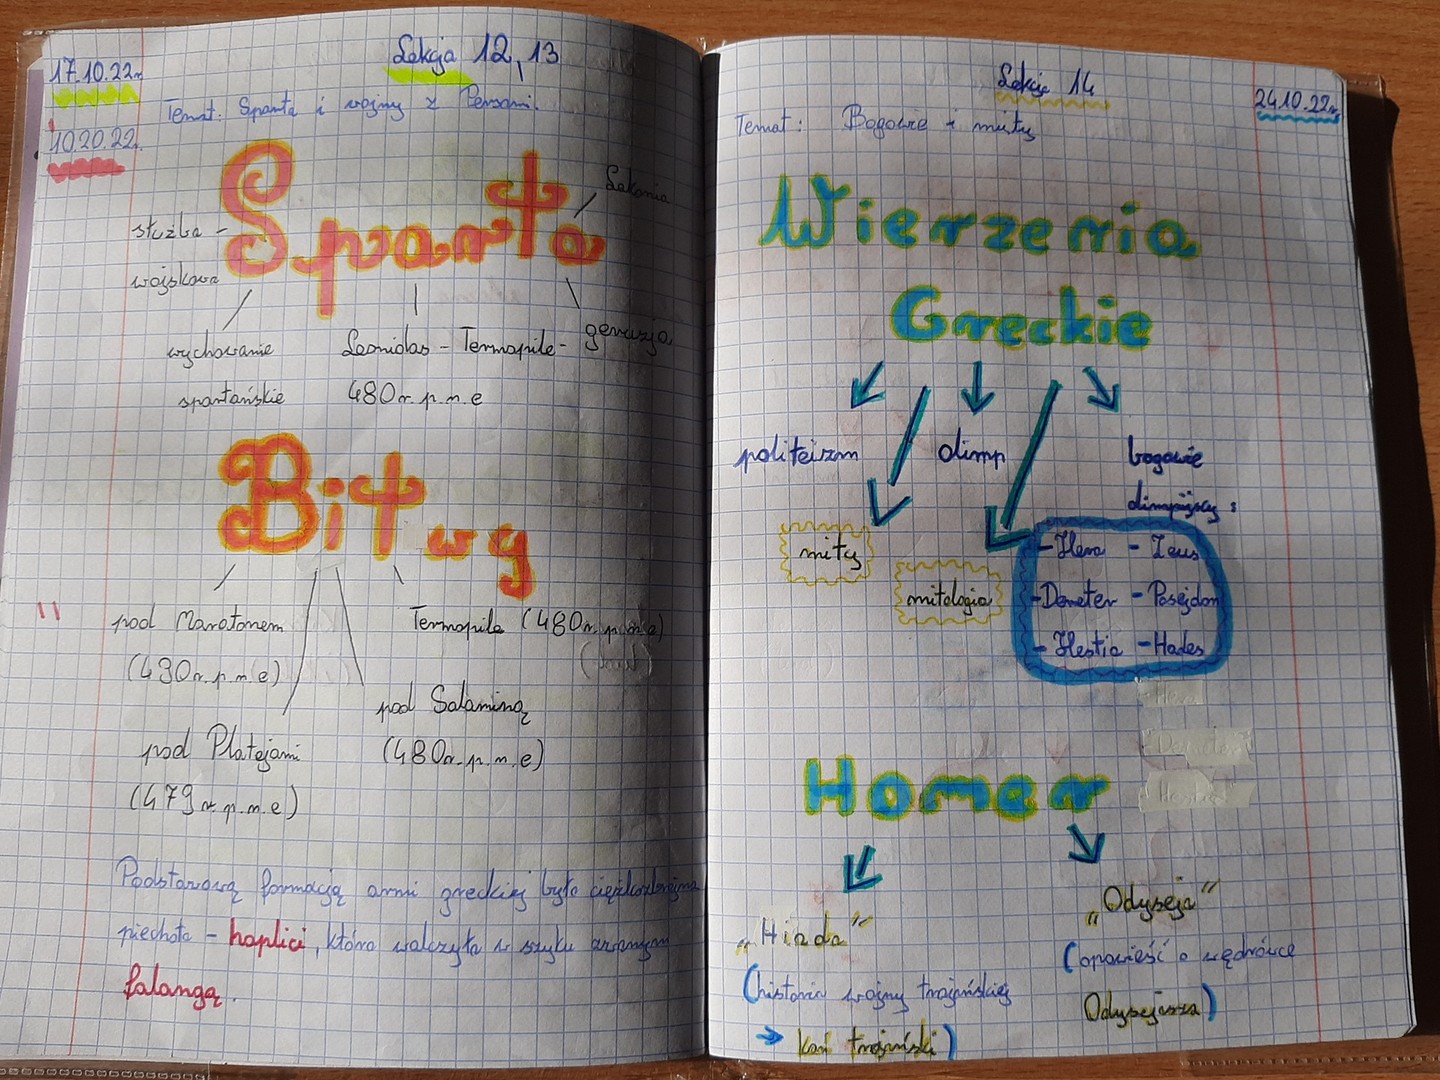 17.10.22r.
Lekcja 12, 13
Temat: Sparta i wojny z Persami.
10.20.22r.
Sparta
Lakonia
służba -
wojskowa
wychowanie
spartańskie
Leonidas - Termopile -
480r.p.n.e
geruzja
Bitwy
pod Maratonem
(490r.p.n.e)
Termopile (480r.p.n.e)
pod Salaminą
(480r.p.n.e)
pod Platejami
(479r.p.n.e)
Podstawową formacją armi greckiej była ciężkozbrojna
piechota - hoplici, która walczyła w szyku zwanym
falangą.
Lekcja 14
24.10.22r.
Temat: Bogowie i mity
Wierzenia
Greckie
politeizm
olimp
bogowie
olimpijscy:
mity
mitologia
- Hera - Zeus
- Demeter - Posejdon
- Hestia - Hades
Homer
„Iliada”
(historia wojny trojańskiej
→ koń trojański)
„Odyseja”
(opowieść o wędrówce
Odyseusza)